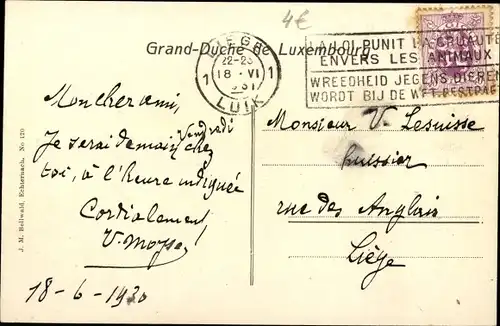 4€
Grand-Duché de Luxembourg
LIEGE
22-23
1 18 - VI 1
LUIK
LA LOI PUNIT LA CRUAUTÉ
ENVERS LES ANIMAUX
WREEDHEID JEGENS DIEREN
WORDT BIJ DE WET BESTRAFT
Mon cher ami,
Vendredi
Je serai demain chez
toi, à l'heure indiquée
Cordialement
18-6-1930
Monsieur V. Lesuisse
huissier
rue des Anglais
Liège
J. M. Bellwald, Echternach. No 120